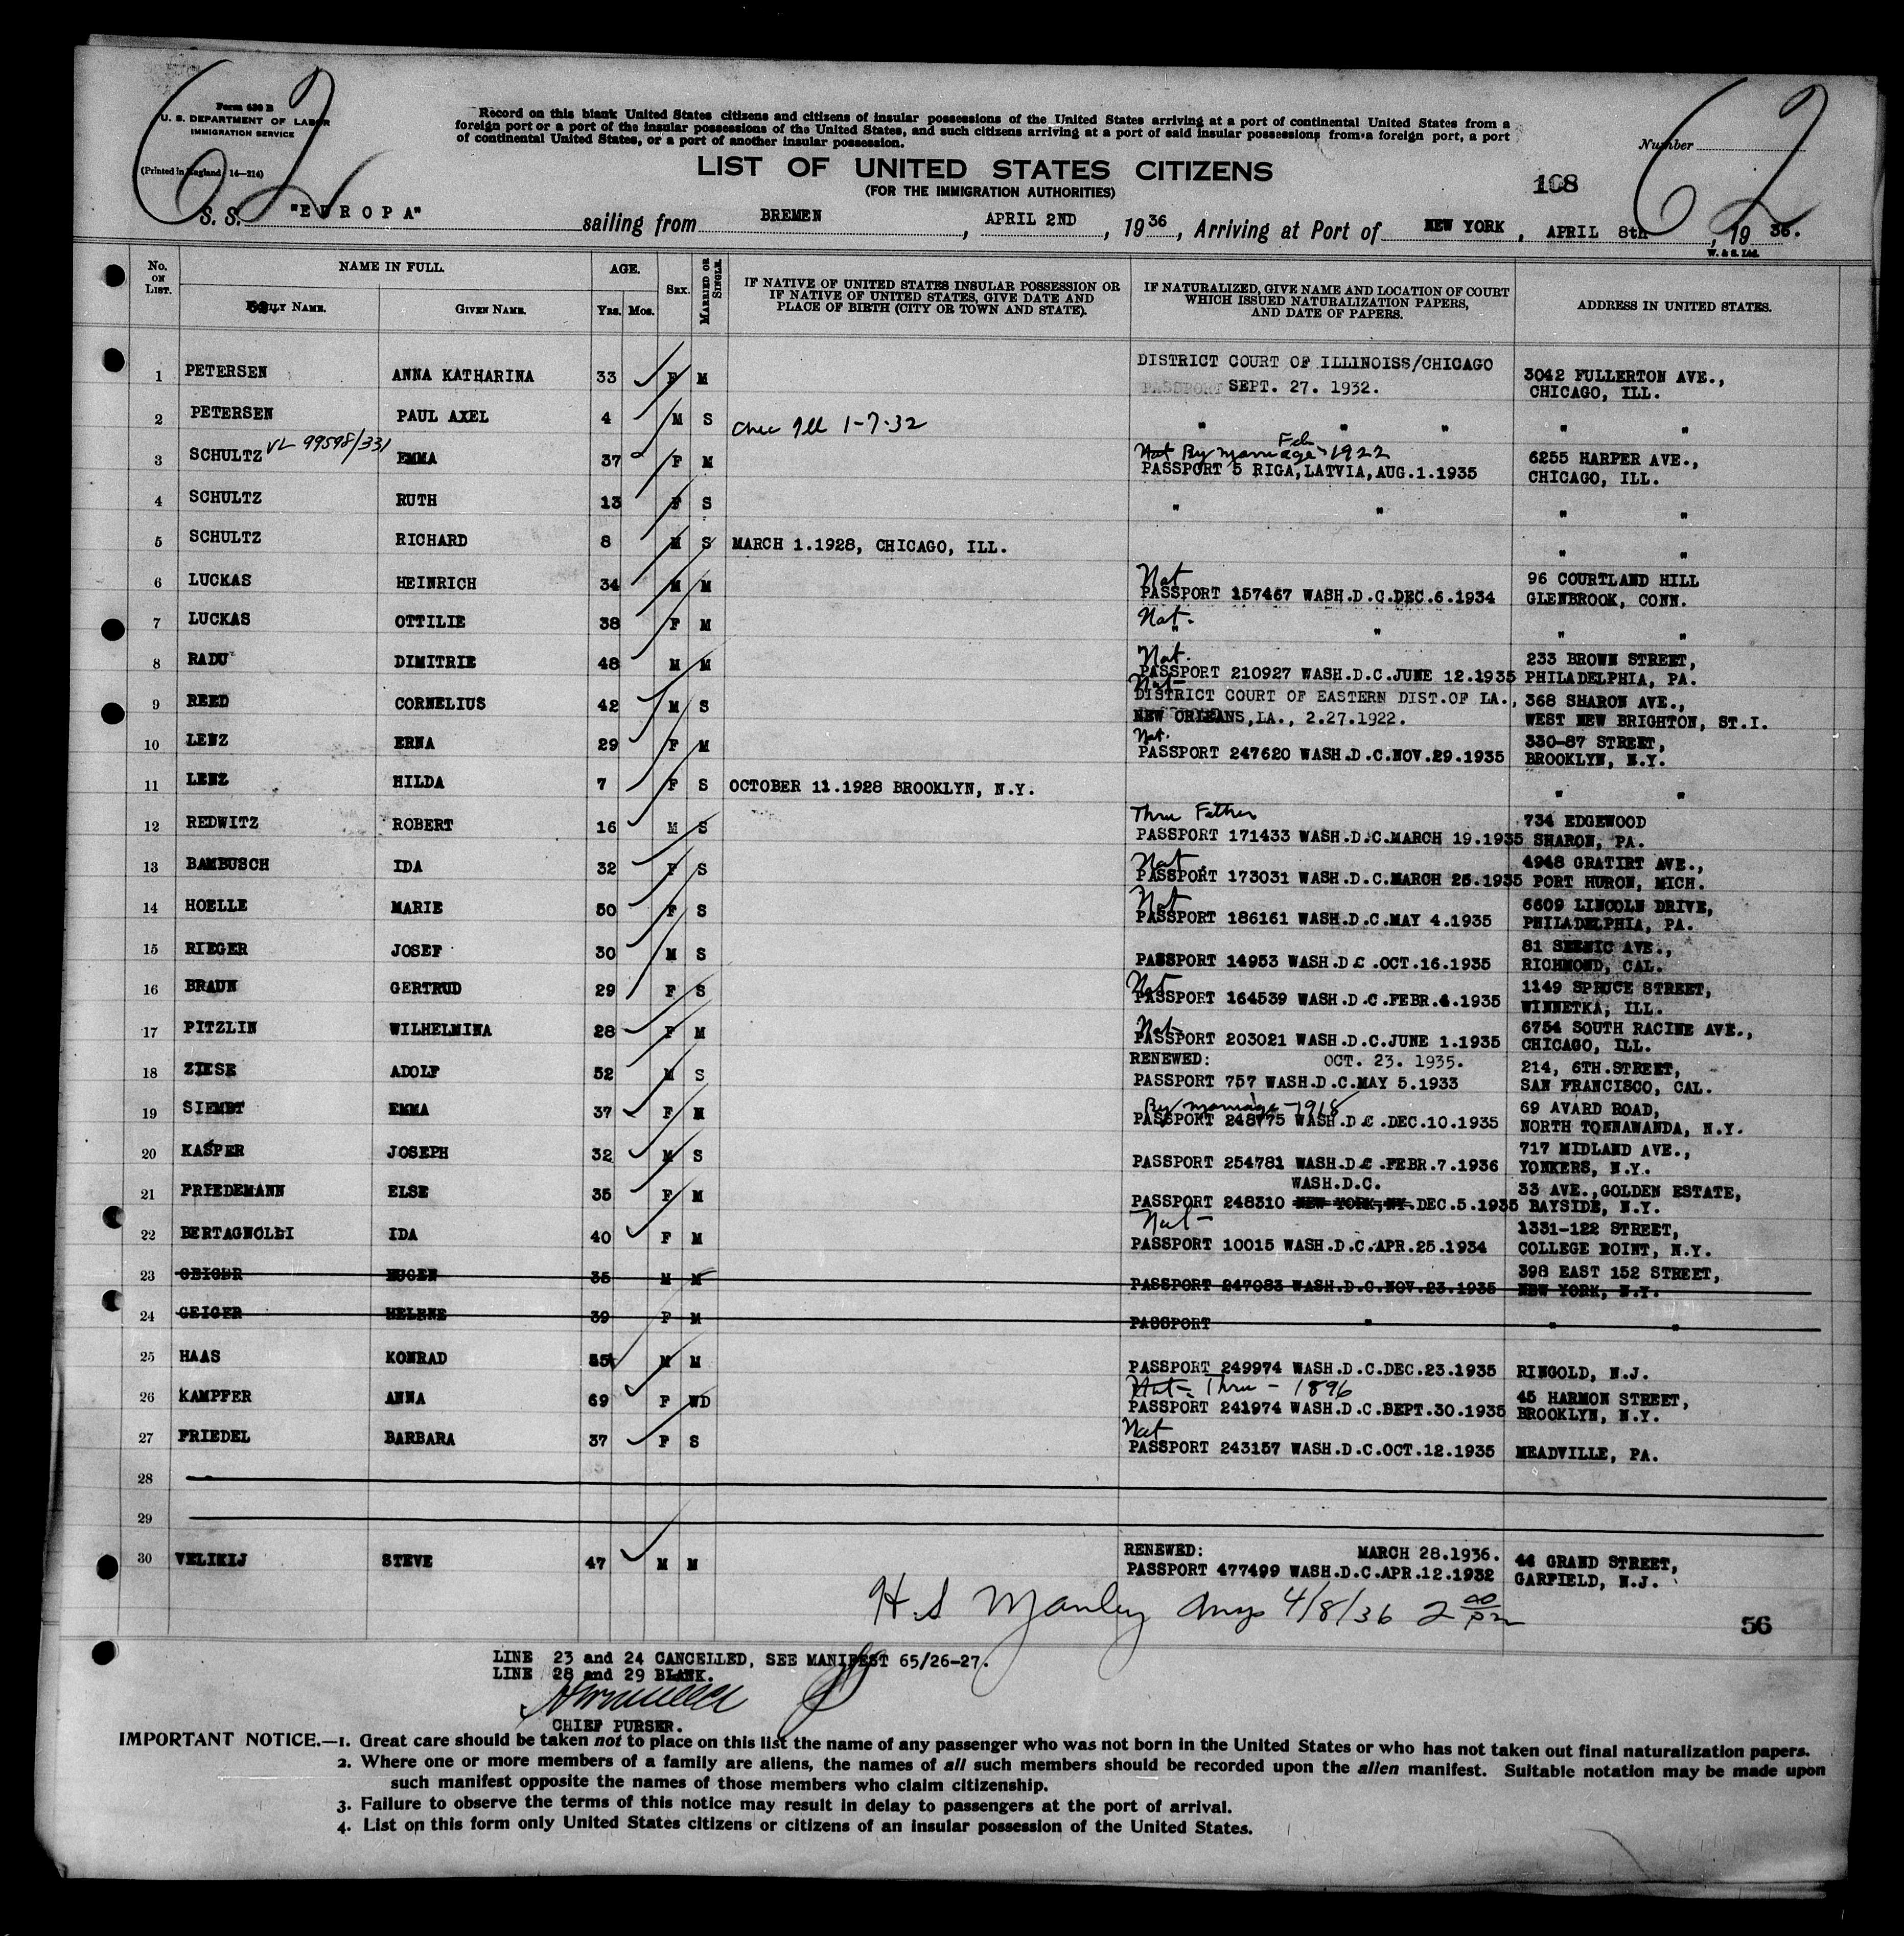 62
62
Form 630 B
U. S. DEPARTMENT OF LABOR
IMMIGRATION SERVICE
(Printed in England 14—214)
Record on this blank United States citizens and citizens of insular possessions of the United States arriving at a port of continental United States from a
foreign port or a port of the insular possessions of the United States, and such citizens arriving at a port of said insular possessions from a foreign port, a port
of continental United States, or a port of another insular possession.
Number
LIST OF UNITED STATES CITIZENS
(FOR THE IMMIGRATION AUTHORITIES)
168
S. S. "EUROPA" sailing from BREMEN, APRIL 2ND, 1936, Arriving at Port of NEW YORK, APRIL 8th, 1936.
W. & S. Ltd.
No. ON LIST. NAME IN FULL. AGE. SEX. MARRIED OR SINGLE. IF NATIVE OF UNITED STATES INSULAR POSSESSION OR IF NATIVE OF UNITED STATES, GIVE DATE AND PLACE OF BIRTH (CITY OR TOWN AND STATE). IF NATURALIZED, GIVE NAME AND LOCATION OF COURT WHICH ISSUED NATURALIZATION PAPERS, AND DATE OF PAPERS. ADDRESS IN UNITED STATES.
FAMILY NAME. GIVEN NAME. Yrs. Mos.
1 PETERSEN ANNA KATHARINA 33 F M DISTRICT COURT OF ILLINOISS/CHICAGO PASSPORT SEPT. 27. 1932. 3042 FULLERTON AVE., CHICAGO, ILL.
2 PETERSEN PAUL AXEL 4 M S Chic Ill 1-7-32 " " " " "
3 SCHULTZ VL 99598/331 EMMA 37 F M Nat By Marriage Feb 1922 PASSPORT 5 RIGA, LATVIA, AUG.1.1935 6255 HARPER AVE., CHICAGO, ILL.
4 SCHULTZ RUTH 13 F S " " " "
5 SCHULTZ RICHARD 8 M S MARCH 1.1928, CHICAGO, ILL. " "
6 LUCKAS HEINRICH 34 M M Nat PASSPORT 157467 WASH.D.C.DEC.6.1934 96 COURTLAND HILL GLENBROOK, CONN.
7 LUCKAS OTTILIE 38 F M Nat. " " " "
8 RADU DIMITRIE 48 M M Nat. PASSPORT 210927 WASH.D.C.JUNE 12.1935 233 BROWN STREET, PHILADELPHIA, PA.
9 REED CORNELIUS 42 M S Nat- DISTRICT COURT OF EASTERN DIST.OF LA., NEW ORLEANS, LA., 2.27.1922. 368 SHARON AVE., WEST NEW BRIGHTON, ST.I.
10 LENZ ERNA 29 F M Nat. PASSPORT 247620 WASH.D.C.NOV.29.1935 330-87 STREET, BROOKLYN, N.Y.
11 LENZ HILDA 7 F S OCTOBER 11.1928 BROOKLYN, N.Y. " "
12 REDWITZ ROBERT 16 M S Thru Father PASSPORT 171433 WASH.D.C.MARCH 19.1935 734 EDGEWOOD SHARON, PA.
13 BAMBUSCH IDA 32 F S Nat. PASSPORT 173031 WASH.D.C.MARCH 25.1935 4948 GRATIRT AVE., PORT HURON, MICH.
14 HOELLE MARIE 50 F S Nat PASSPORT 186161 WASH.D.C.MAY 4.1935 6609 LINCOLN DRIVE, PHILADELPHIA, PA.
15 RIEGER JOSEF 30 M S PASSPORT 14953 WASH.D.C.OCT.16.1935 81 AVE., RICHMOND, CAL.
16 BRAUN GERTRUD 29 F S Nat PASSPORT 164539 WASH.D.C.FEBR.4.1935 1149 SPRUCE STREET, WINNETKA, ILL.
17 PITZLIN WILHELMINA 28 F M Nat- PASSPORT 203021 WASH.D.C.JUNE 1.1935 6754 SOUTH RACINE AVE., CHICAGO, ILL.
18 ZIESE ADOLF 52 M S RENEWED: OCT. 23. 1935. PASSPORT 757 WASH.D.C.MAY 5.1933 214, 6TH.STREET, SAN FRANCISCO, CAL.
19 SIEMBT EMMA 37 F M By Marriage-1918 PASSPORT 248775 WASH.D.C.DEC.10.1935 69 AVARD ROAD, NORTH TONNAWANDA, N.Y.
20 KASPER JOSEPH 32 M S PASSPORT 254781 WASH.D.C.FEBR.7.1936 717 MIDLAND AVE., YONKERS, N.Y.
21 FRIEDEMANN ELSE 35 F M WASH.D.C. PASSPORT 248310 NEW YORK,NY. DEC.5.1935 33 AVE.,GOLDEN ESTATE, BAYSIDE, N.Y.
22 BERTAGNOLLI IDA 40 F M Nat- PASSPORT 10015 WASH.D.C.APR.25.1934 1331-122 STREET, COLLEGE POINT, N.Y.
23 GEIGER EUGEN 35 M M PASSPORT 247083 WASH.D.C.NOV.23.1935 398 EAST 152 STREET, NEW YORK, N.Y.
24 GEIGER HELENE 39 F M PASSPORT " " "
25 HAAS KONRAD M M PASSPORT 249974 WASH.D.C.DEC.23.1935 RINGOLD, N.J.
26 KAMPFER ANNA 69 F WD Nat- Thru - 1896 PASSPORT 241974 WASH.D.C.SEPT.30.1935 45 HARMON STREET, BROOKLYN, N.Y.
27 FRIEDEL BARBARA 37 F S Nat PASSPORT 243157 WASH.D.C.OCT.12.1935 MEADVILLE, PA.
28
29
30 VELIKIJ STEVE 47 M M RENEWED: MARCH 28.1936. PASSPORT 477499 WASH.D.C.APR.12.1932 44 GRAND STREET, GARFIELD, N.J.
H S Manley 4/8/36 2 00 pm
56
LINE 23 and 24 CANCELLED, SEE MANIFEST 65/26-27.
LINE 28 and 29 BLANK.
CHIEF PURSER.
IMPORTANT NOTICE.—1. Great care should be taken not to place on this list the name of any passenger who was not born in the United States or who has not taken out final naturalization papers.
2. Where one or more members of a family are aliens, the names of all such members should be recorded upon the alien manifest. Suitable notation may be made upon
such manifest opposite the names of those members who claim citizenship.
3. Failure to observe the terms of this notice may result in delay to passengers at the port of arrival.
4. List on this form only United States citizens or citizens of an insular possession of the United States.